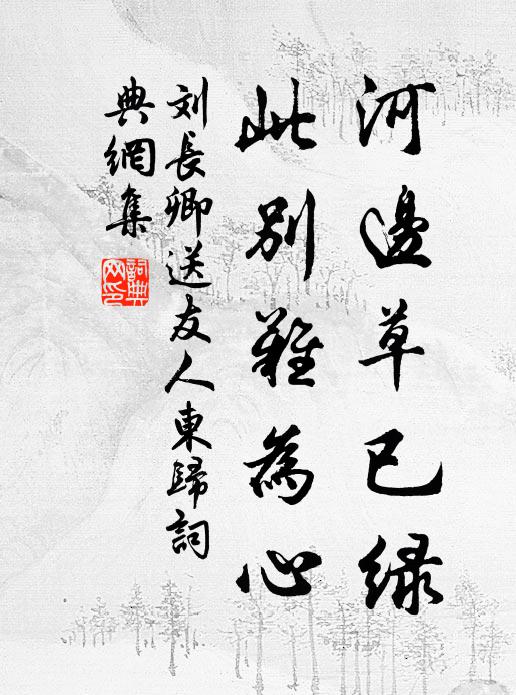 河邊草已緑
此別難為心
刘長卿送友人東歸詞
典網集
詞典
网印